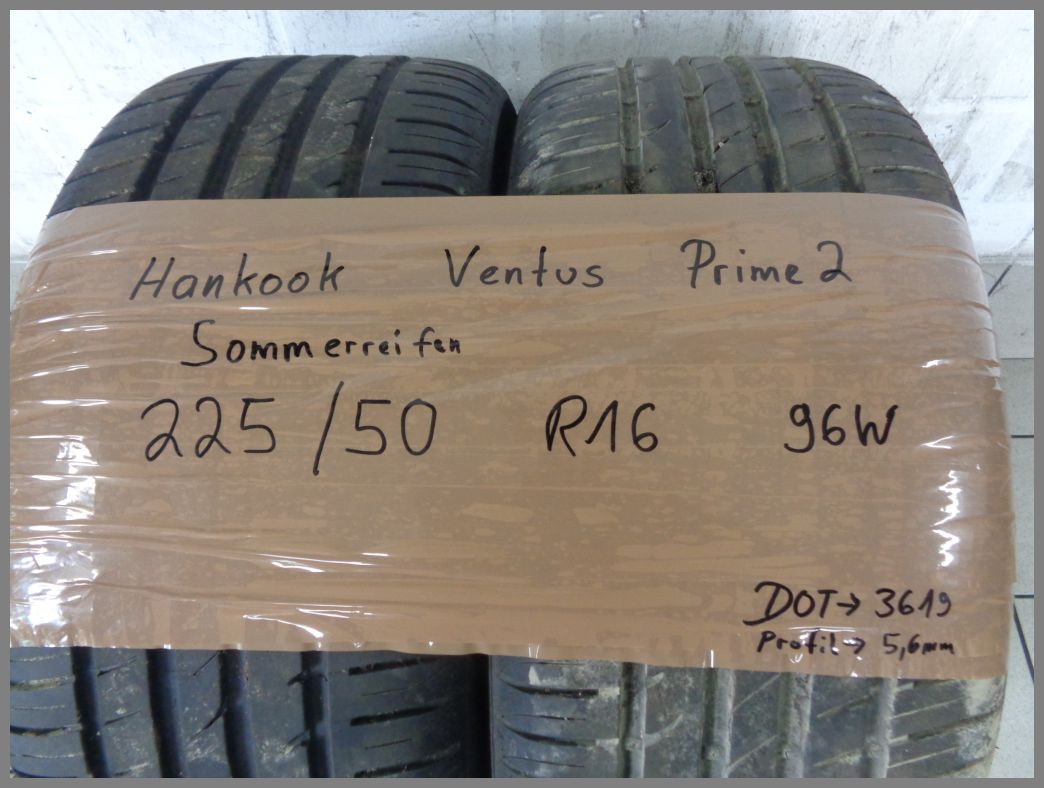 Hankook Ventus Prime 2
Sommerreifen
225/50 R16 96W
DOT→ 3619
Profil→ 5,6mm